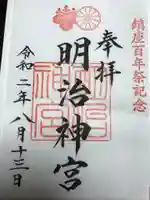 鎮座百年祭記念
奉拝
明治神宮
令和二年八月十三日
明治神宮